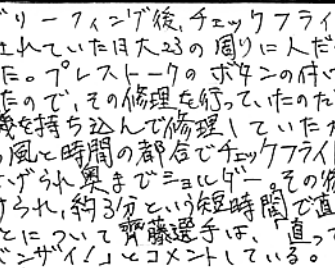 ブリーフィング後、チェックフライ
されていた日大23の周りに人だ
た。プレストークのボタンの付
たので、その修理を行っていたのだ
機を持ち込んで修理していたが
風と時間の都合でチェックフライ
げられ奥までショルダー。その後
けられ、約3分という短時間で直
とについて齊藤選手は、「直って
バンザイ!」とコメントしている。